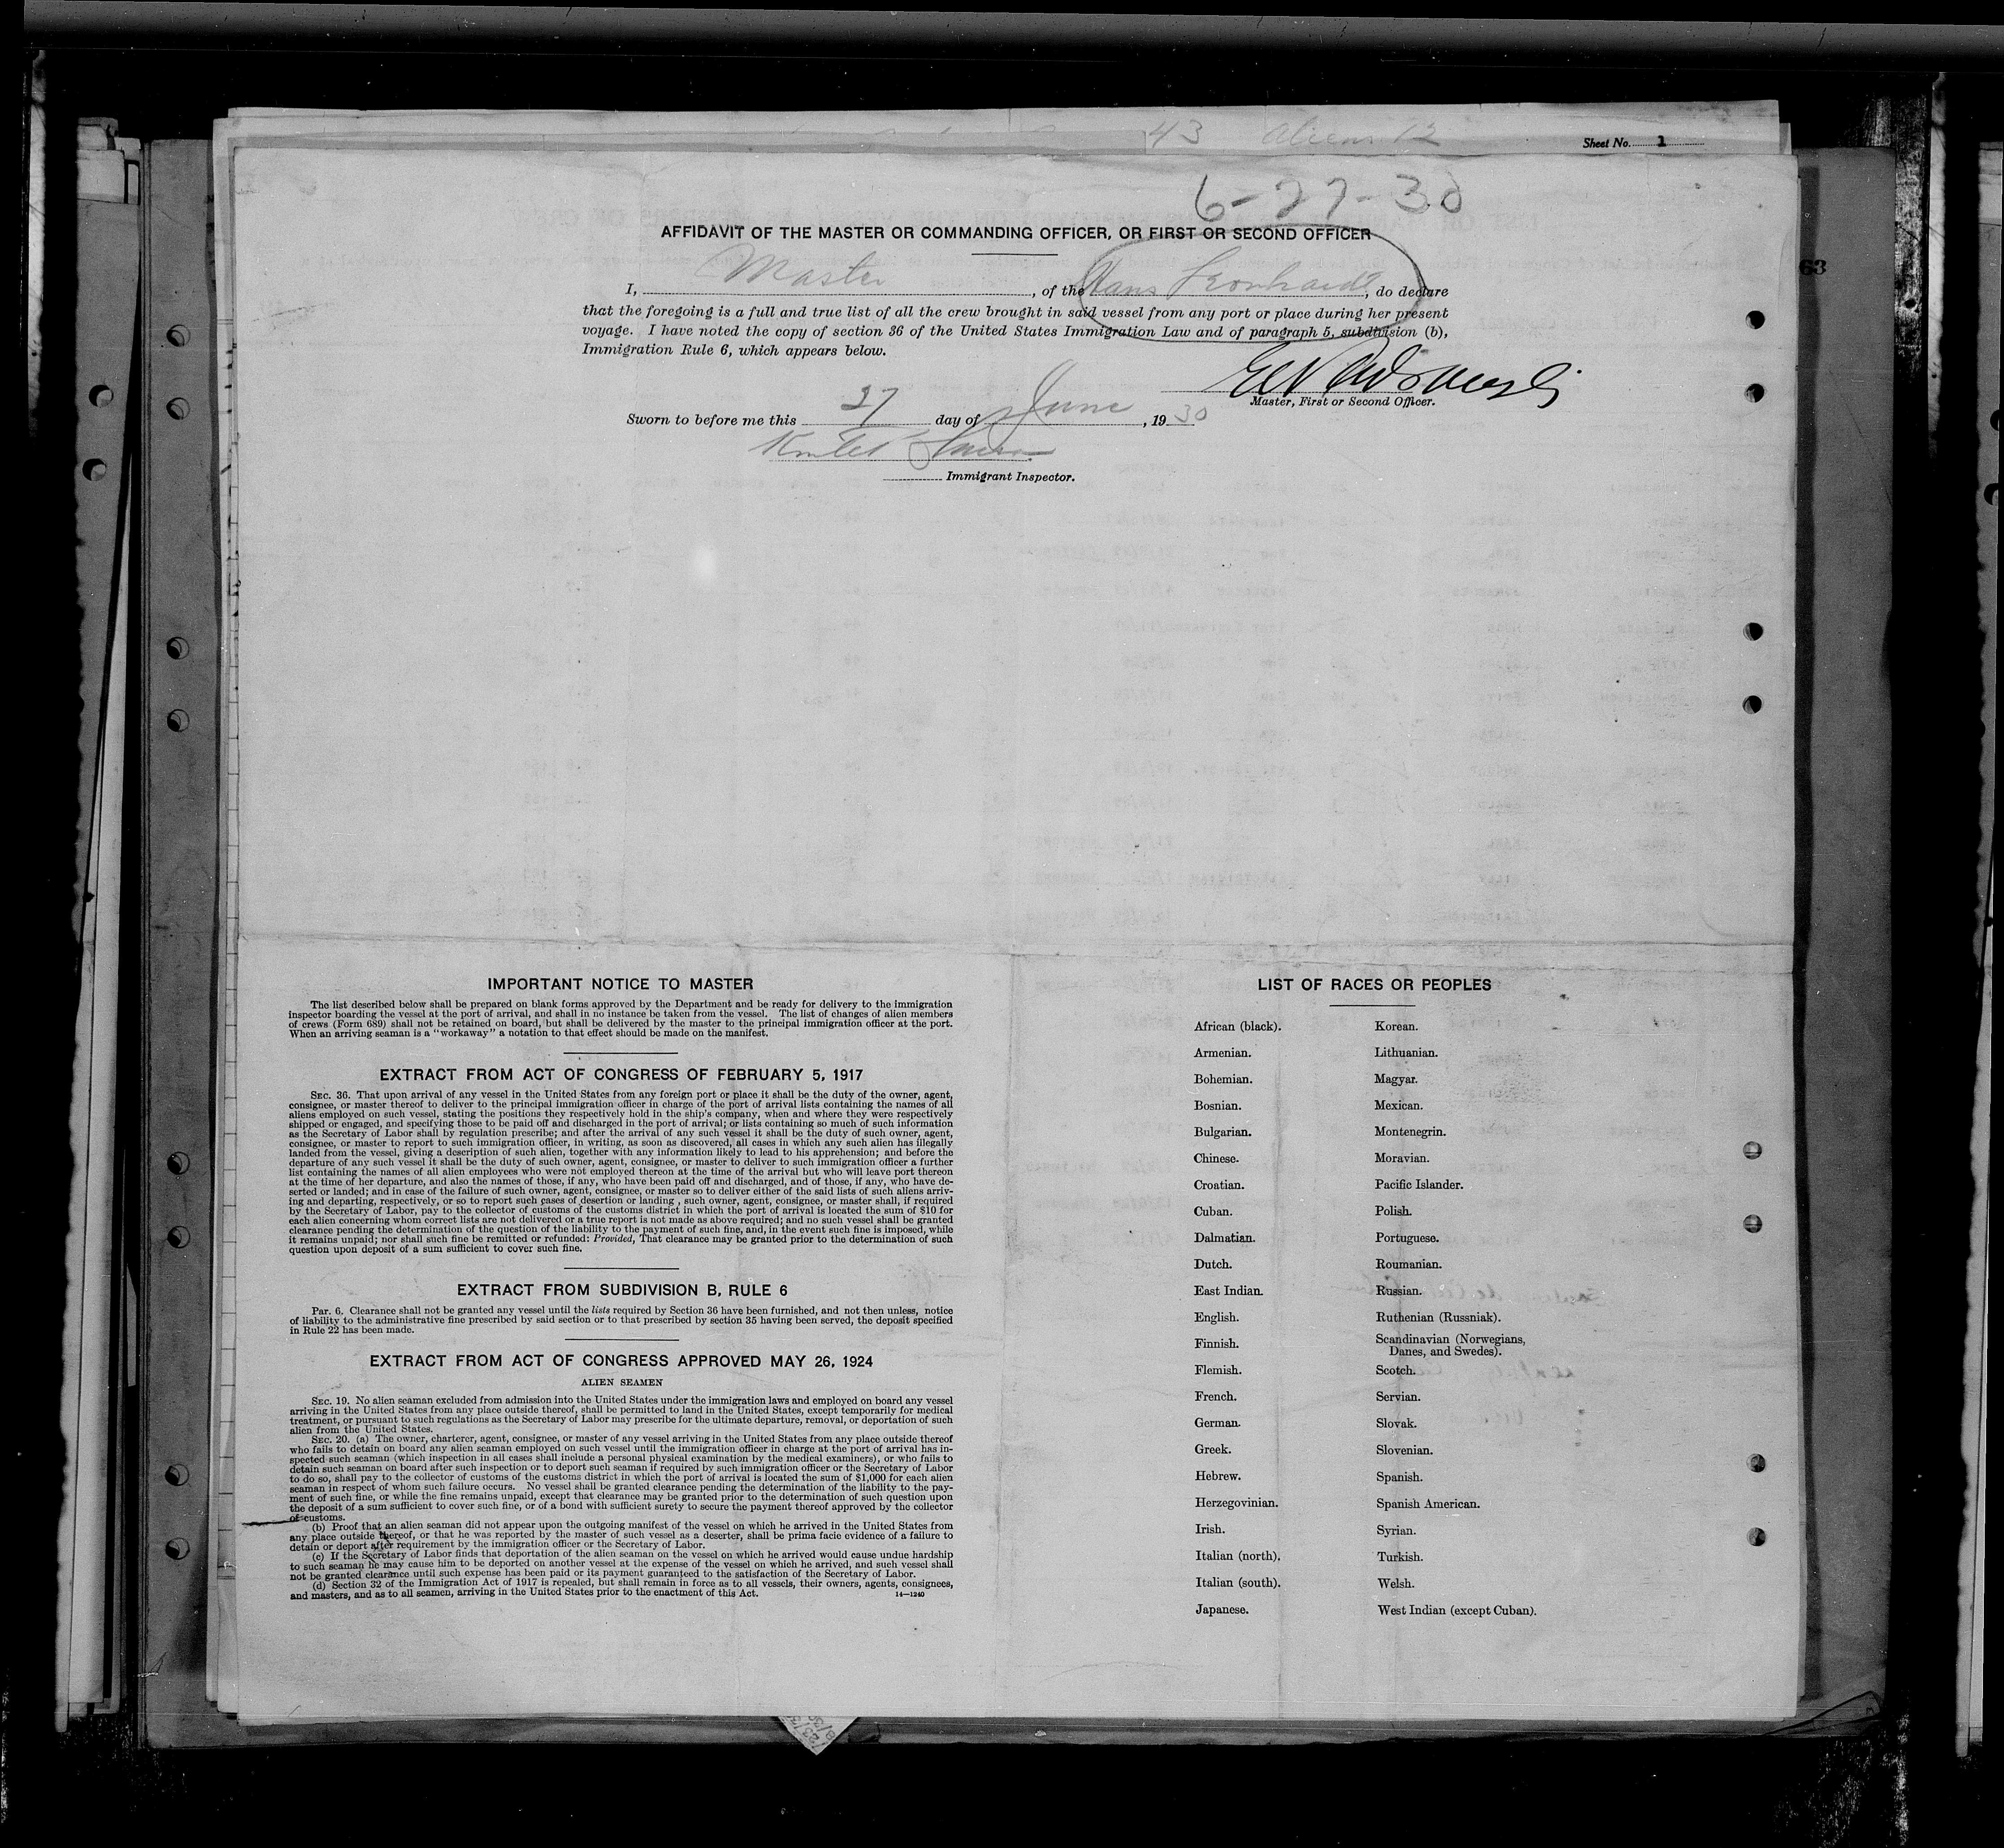 43 Aliens 12
Sheet No. 1
6-27-30
63
AFFIDAVIT OF THE MASTER OR COMMANDING OFFICER, OR FIRST OR SECOND OFFICER
I, Master, of the Hans Leonhardt, do declare
that the foregoing is a full and true list of all the crew brought in said vessel from any port or place during her present
voyage. I have noted the copy of section 36 of the United States Immigration Law and of paragraph 5, subdivision (b),
Immigration Rule 6, which appears below.
Master, First or Second Officer.
Sworn to before me this 27 day of June, 1930
Immigrant Inspector.
IMPORTANT NOTICE TO MASTER
The list described below shall be prepared on blank forms approved by the Department and be ready for delivery to the immigration
inspector boarding the vessel at the port of arrival, and shall in no instance be taken from the vessel. The list of changes of alien members
of crews (Form 689) shall not be retained on board, but shall be delivered by the master to the principal immigration officer at the port.
When an arriving seaman is a "workaway" a notation to that effect should be made on the manifest.
EXTRACT FROM ACT OF CONGRESS OF FEBRUARY 5, 1917
SEC. 36. That upon arrival of any vessel in the United States from any foreign port or place it shall be the duty of the owner, agent,
consignee, or master thereof to deliver to the principal immigration officer in charge of the port of arrival lists containing the names of all
aliens employed on such vessel, stating the positions they respectively hold in the ship's company, when and where they were respectively
shipped or engaged, and specifying those to be paid off and discharged in the port of arrival; or lists containing so much of such information
as the Secretary of Labor shall by regulation prescribe; and after the arrival of any such vessel it shall be the duty of such owner, agent,
consignee, or master to report to such immigration officer, in writing, as soon as discovered, all cases in which any such alien has illegally
landed from the vessel, giving a description of such alien, together with any information likely to lead to his apprehension; and before the
departure of any such vessel it shall be the duty of such owner, agent, consignee, or master to deliver to such immigration officer a further
list containing the names of all alien employees who were not employed thereon at the time of the arrival but who will leave port thereon
at the time of her departure, and also the names of those, if any, who have been paid off and discharged, and of those, if any, who have de-
serted or landed; and in case of the failure of such owner, agent, consignee, or master so to deliver either of the said lists of such aliens arriv-
ing and departing, respectively, or so to report such cases of desertion or landing , such owner, agent, consignee, or master shall, if required
by the Secretary of Labor, pay to the collector of customs of the customs district in which the port of arrival is located the sum of $10 for
each alien concerning whom correct lists are not delivered or a true report is not made as above required; and no such vessel shall be granted
clearance pending the determination of the question of the liability to the payment of such fine, and, in the event such fine is imposed, while
it remains unpaid; nor shall such fine be remitted or refunded: Provided, That clearance may be granted prior to the determination of such
question upon deposit of a sum sufficient to cover such fine.
EXTRACT FROM SUBDIVISION B, RULE 6
Par. 6. Clearance shall not be granted any vessel until the lists required by Section 36 have been furnished, and not then unless, notice
of liability to the administrative fine prescribed by said section or to that prescribed by section 35 having been served, the deposit specified
in Rule 22 has been made.
EXTRACT FROM ACT OF CONGRESS APPROVED MAY 26, 1924
ALIEN SEAMEN
SEC. 19. No alien seaman excluded from admission into the United States under the immigration laws and employed on board any vessel
arriving in the United States from any place outside thereof, shall be permitted to land in the United States, except temporarily for medical
treatment, or pursuant to such regulations as the Secretary of Labor may prescribe for the ultimate departure, removal, or deportation of such
alien from the United States.
SEC. 20. (a) The owner, charterer, agent, consignee, or master of any vessel arriving in the United States from any place outside thereof
who fails to detain on board any alien seaman employed on such vessel until the immigration officer in charge at the port of arrival has in-
spected such seaman (which inspection in all cases shall include a personal physical examination by the medical examiners), or who fails to
detain such seaman on board after such inspection or to deport such seaman if required by such immigration officer or the Secretary of Labor
to do so, shall pay to the collector of customs of the customs district in which the port of arrival is located the sum of $1,000 for each alien
seaman in respect of whom such failure occurs. No vessel shall be granted clearance pending the determination of the liability to the pay-
ment of such fine, or while the fine remains unpaid, except that clearance may be granted prior to the determination of such question upon
the deposit of a sum sufficient to cover such fine, or of a bond with sufficient surety to secure the payment thereof approved by the collector
of customs.
(b) Proof that an alien seaman did not appear upon the outgoing manifest of the vessel on which he arrived in the United States from
any place outside thereof, or that he was reported by the master of such vessel as a deserter, shall be prima facie evidence of a failure to
detain or deport after requirement by the immigration officer or the Secretary of Labor.
(c) If the Secretary of Labor finds that deportation of the alien seaman on the vessel on which he arrived would cause undue hardship
to such seaman he may cause him to be deported on another vessel at the expense of the vessel on which he arrived, and such vessel shall
not be granted clearance until such expense has been paid or its payment guaranteed to the satisfaction of the Secretary of Labor.
(d) Section 32 of the Immigration Act of 1917 is repealed, but shall remain in force as to all vessels, their owners, agents, consignees,
and masters, and as to all seamen, arriving in the United States prior to the enactment of this Act. 14—1240
LIST OF RACES OR PEOPLES
African (black).
Armenian.
Bohemian.
Bosnian.
Bulgarian.
Chinese.
Croatian.
Cuban.
Dalmatian.
Dutch.
East Indian.
English.
Finnish.
Flemish.
French.
German.
Greek.
Hebrew.
Herzegovinian.
Irish.
Italian (north).
Italian (south).
Japanese.
Korean.
Lithuanian.
Magyar.
Mexican.
Montenegrin.
Moravian.
Pacific Islander.
Polish.
Portuguese.
Roumanian.
Russian.
Ruthenian (Russniak).
Scandinavian (Norwegians,
Danes, and Swedes).
Scotch.
Servian.
Slovak.
Slovenian.
Spanish.
Spanish American.
Syrian.
Turkish.
Welsh.
West Indian (except Cuban).